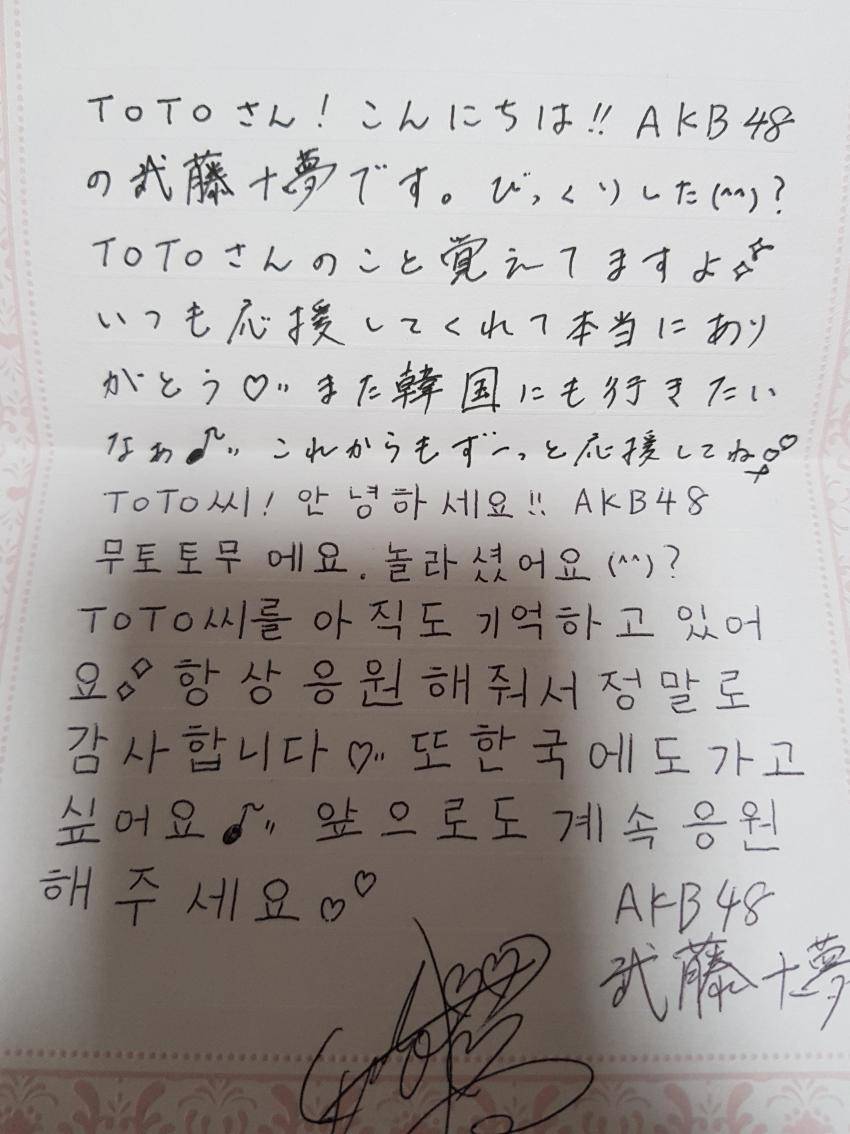 ToTo さん! こんにちは!! AKB48
の武藤十夢です。びっくりした(^^)?
ToToさんのこと覚えてますよ
いつも応援してくれて本当にあり
がとう♡〃また韓国にも行きたい
なぁ♪〃これからもずーっと応援してね♡♡
ToTo씨! 안녕하세요!! AKB48
무토토무에요. 놀라셨어요(^^)?
ToTo씨를 아직도 기억하고 있어
요 항상 응원해줘서 정말로
감사합니다♡〃 또 한국에도 가고
싶어요♪〃 앞으로도 계속 응원
해 주세요♡♡
AKB48
武藤十夢